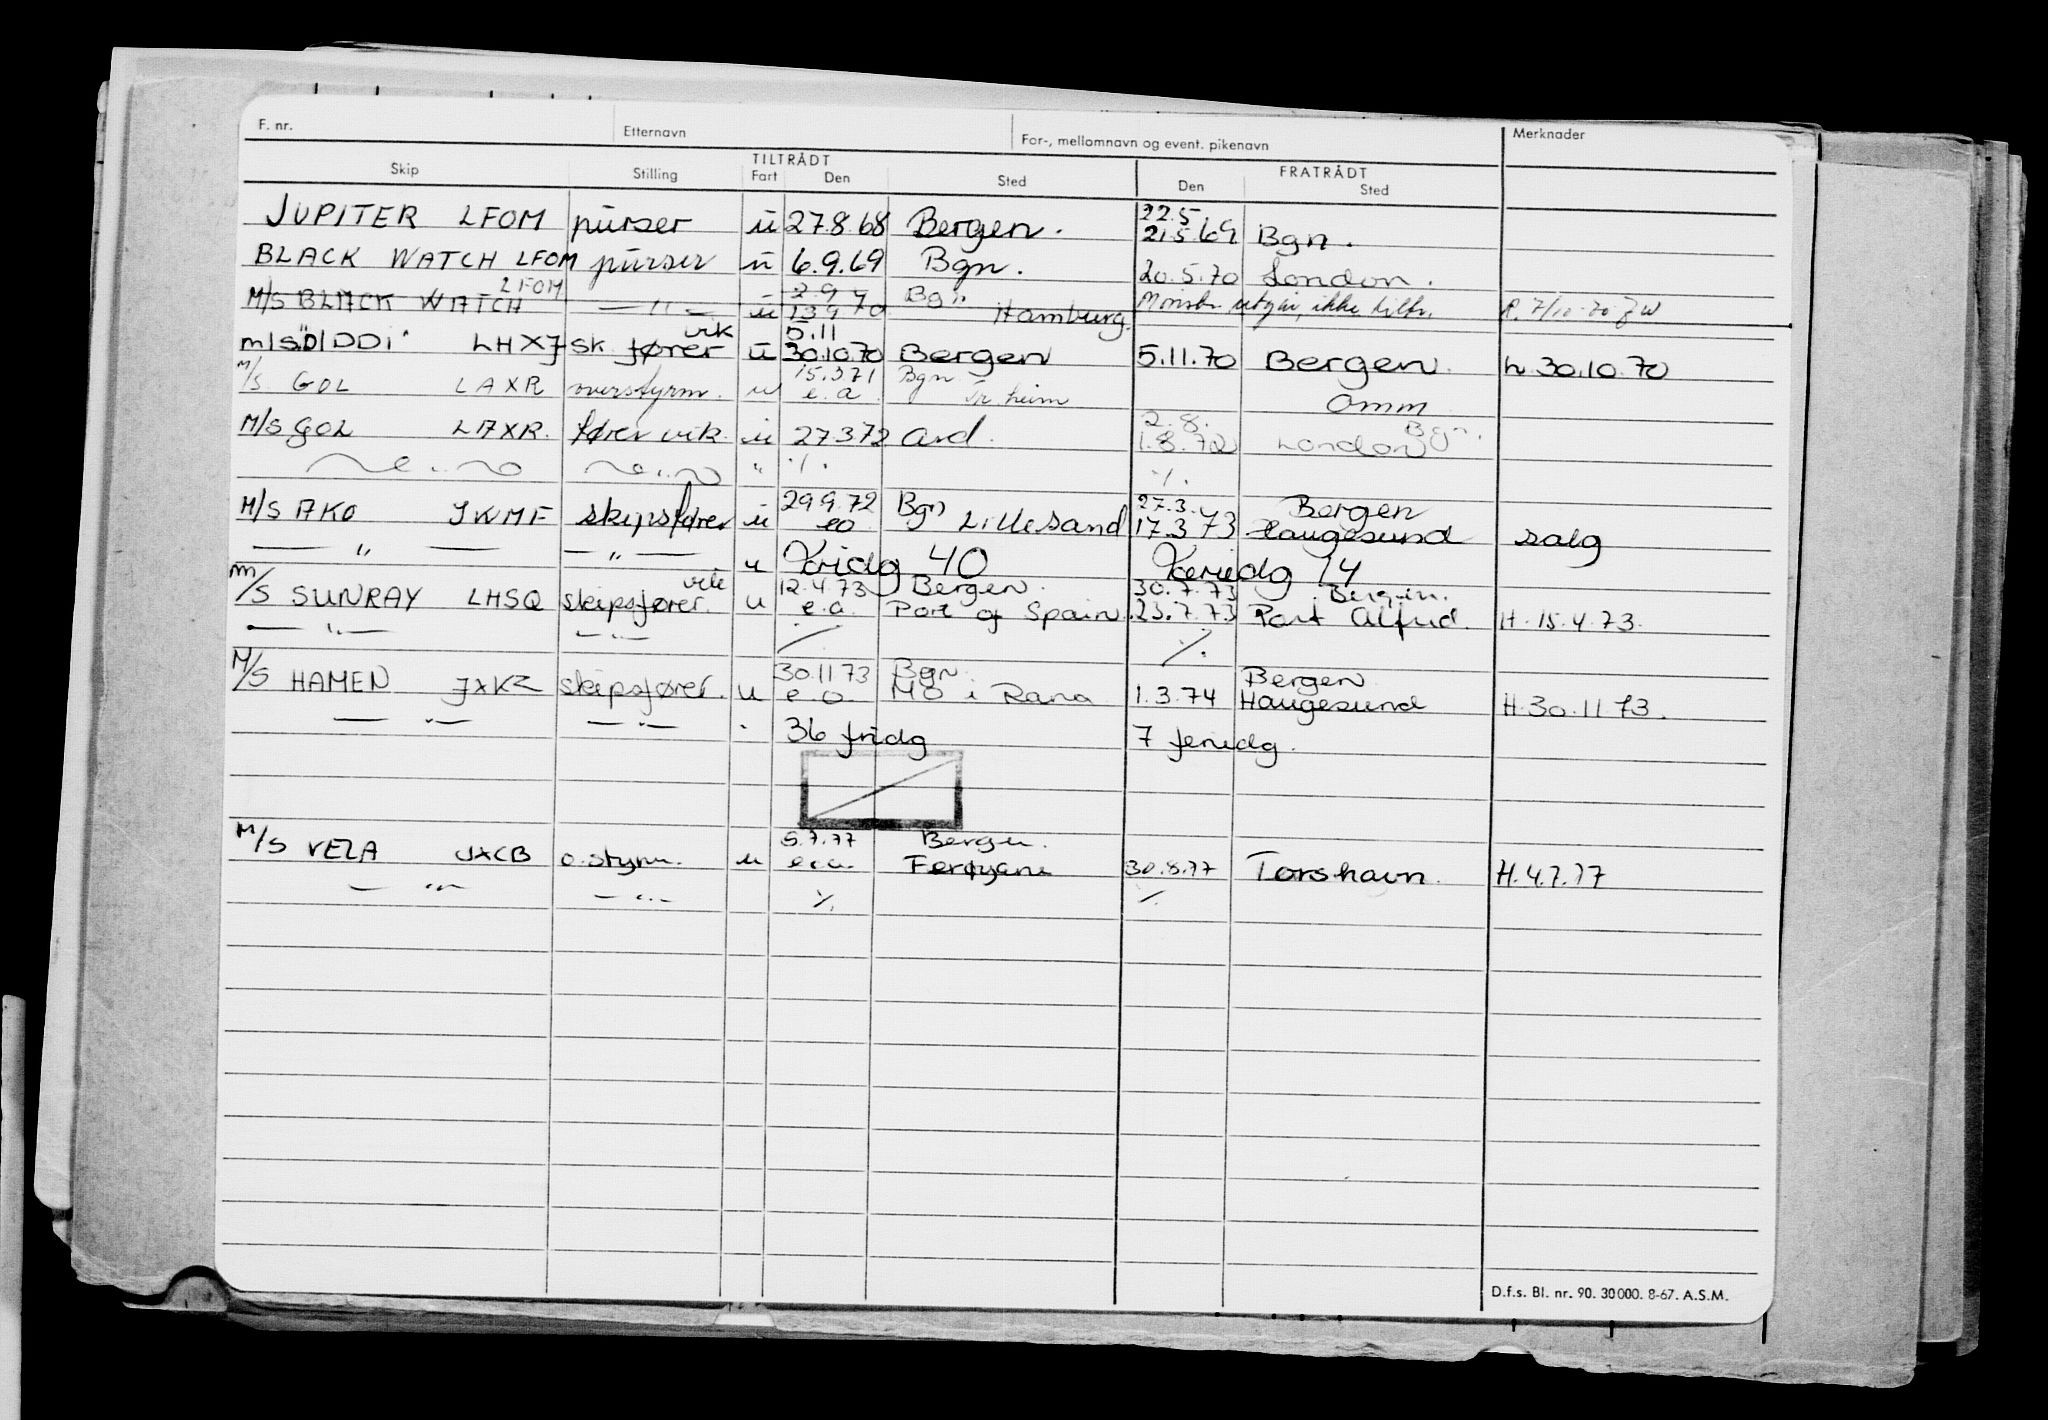 F. nr. Etternavn For-, mellomnavn og event. pikenavn Merknader
TILTRÅDT FRATRÅDT
Skip Stilling Fart Den Sted Den Sted
22.5
JUPITER LFOM purser u 27.8.68 Bergen. 21.5.69 Bgn.
BLACK WATCH LFOM purser u 6.9.69 Bgn. 20.5.70 London.
LFOM 2.9 Bgn
M/S BLACK WATCH — " — u 13.9.70 Hamburg. Mönstr. utgår, ikke tiltr. R. 7/10-70
vik 5.11
m/s DIDDI LHXJ sk. fører u 30.10.70 Bergen 5.11.70 Bergen h 30.10.70
15.3.71 Bgn
M/S GOL LAXR overstyrm. u e.a Tr.heim Omm
2.8. Bgn.
M/S GOL LAXR. fører vik. u 27372 Ard. 1.8.72 London
— " — — " — " ./. ./.
29.9.72 Bgn 27.3. Bergen
M/S AKO JKMF skipsfører u eo Lillesand 17.3.73. Haugesund salg
— " — — " — u fridg 40 feriedg 14
vik 12.4.73 Bergen. 30.7.73 Bergen.
M/S SUNRAY LHSQ skipsfører. u e.a. Port of Spain. 23.7.73 Port Alfred. H. 15.4.73.
— " — — " — ./. ./.
30.11.73 Bgn. Bergen
M/S HAMEN JXKZ skipsfører. u e.o. MO i Rana 1.3.74 Haugesund H.30.11.73.
— " — — " — " 36 fridg 7 feriedg.
5.7.77 Bergen.
M/S VELA JXCB o.styrm. u e.a. Færøyane 30.8.77 Torshavn. H.4.7.77
— " — — " — ./. ./.
D.f.s. Bl. nr. 90. 30 000. 8-67. A.S.M.